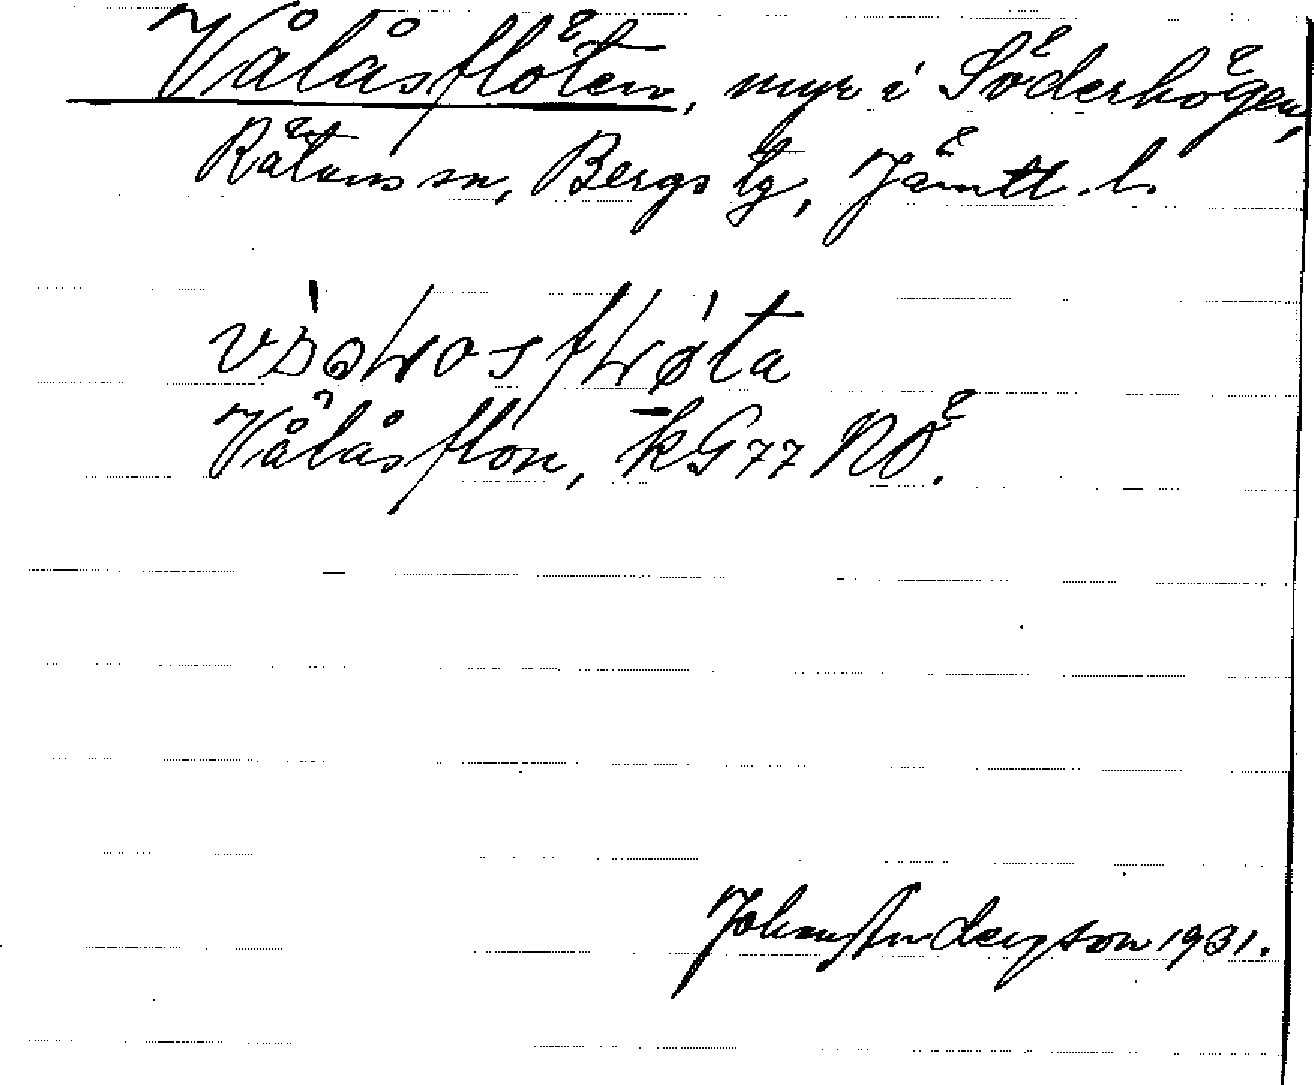 Vålåsflöten, myr i Söderhögen,
Rätans sn, Bergs tg, Jämtl. l.
Vålåsflön, kG77 NÖ.
Johan Anderson 1931.